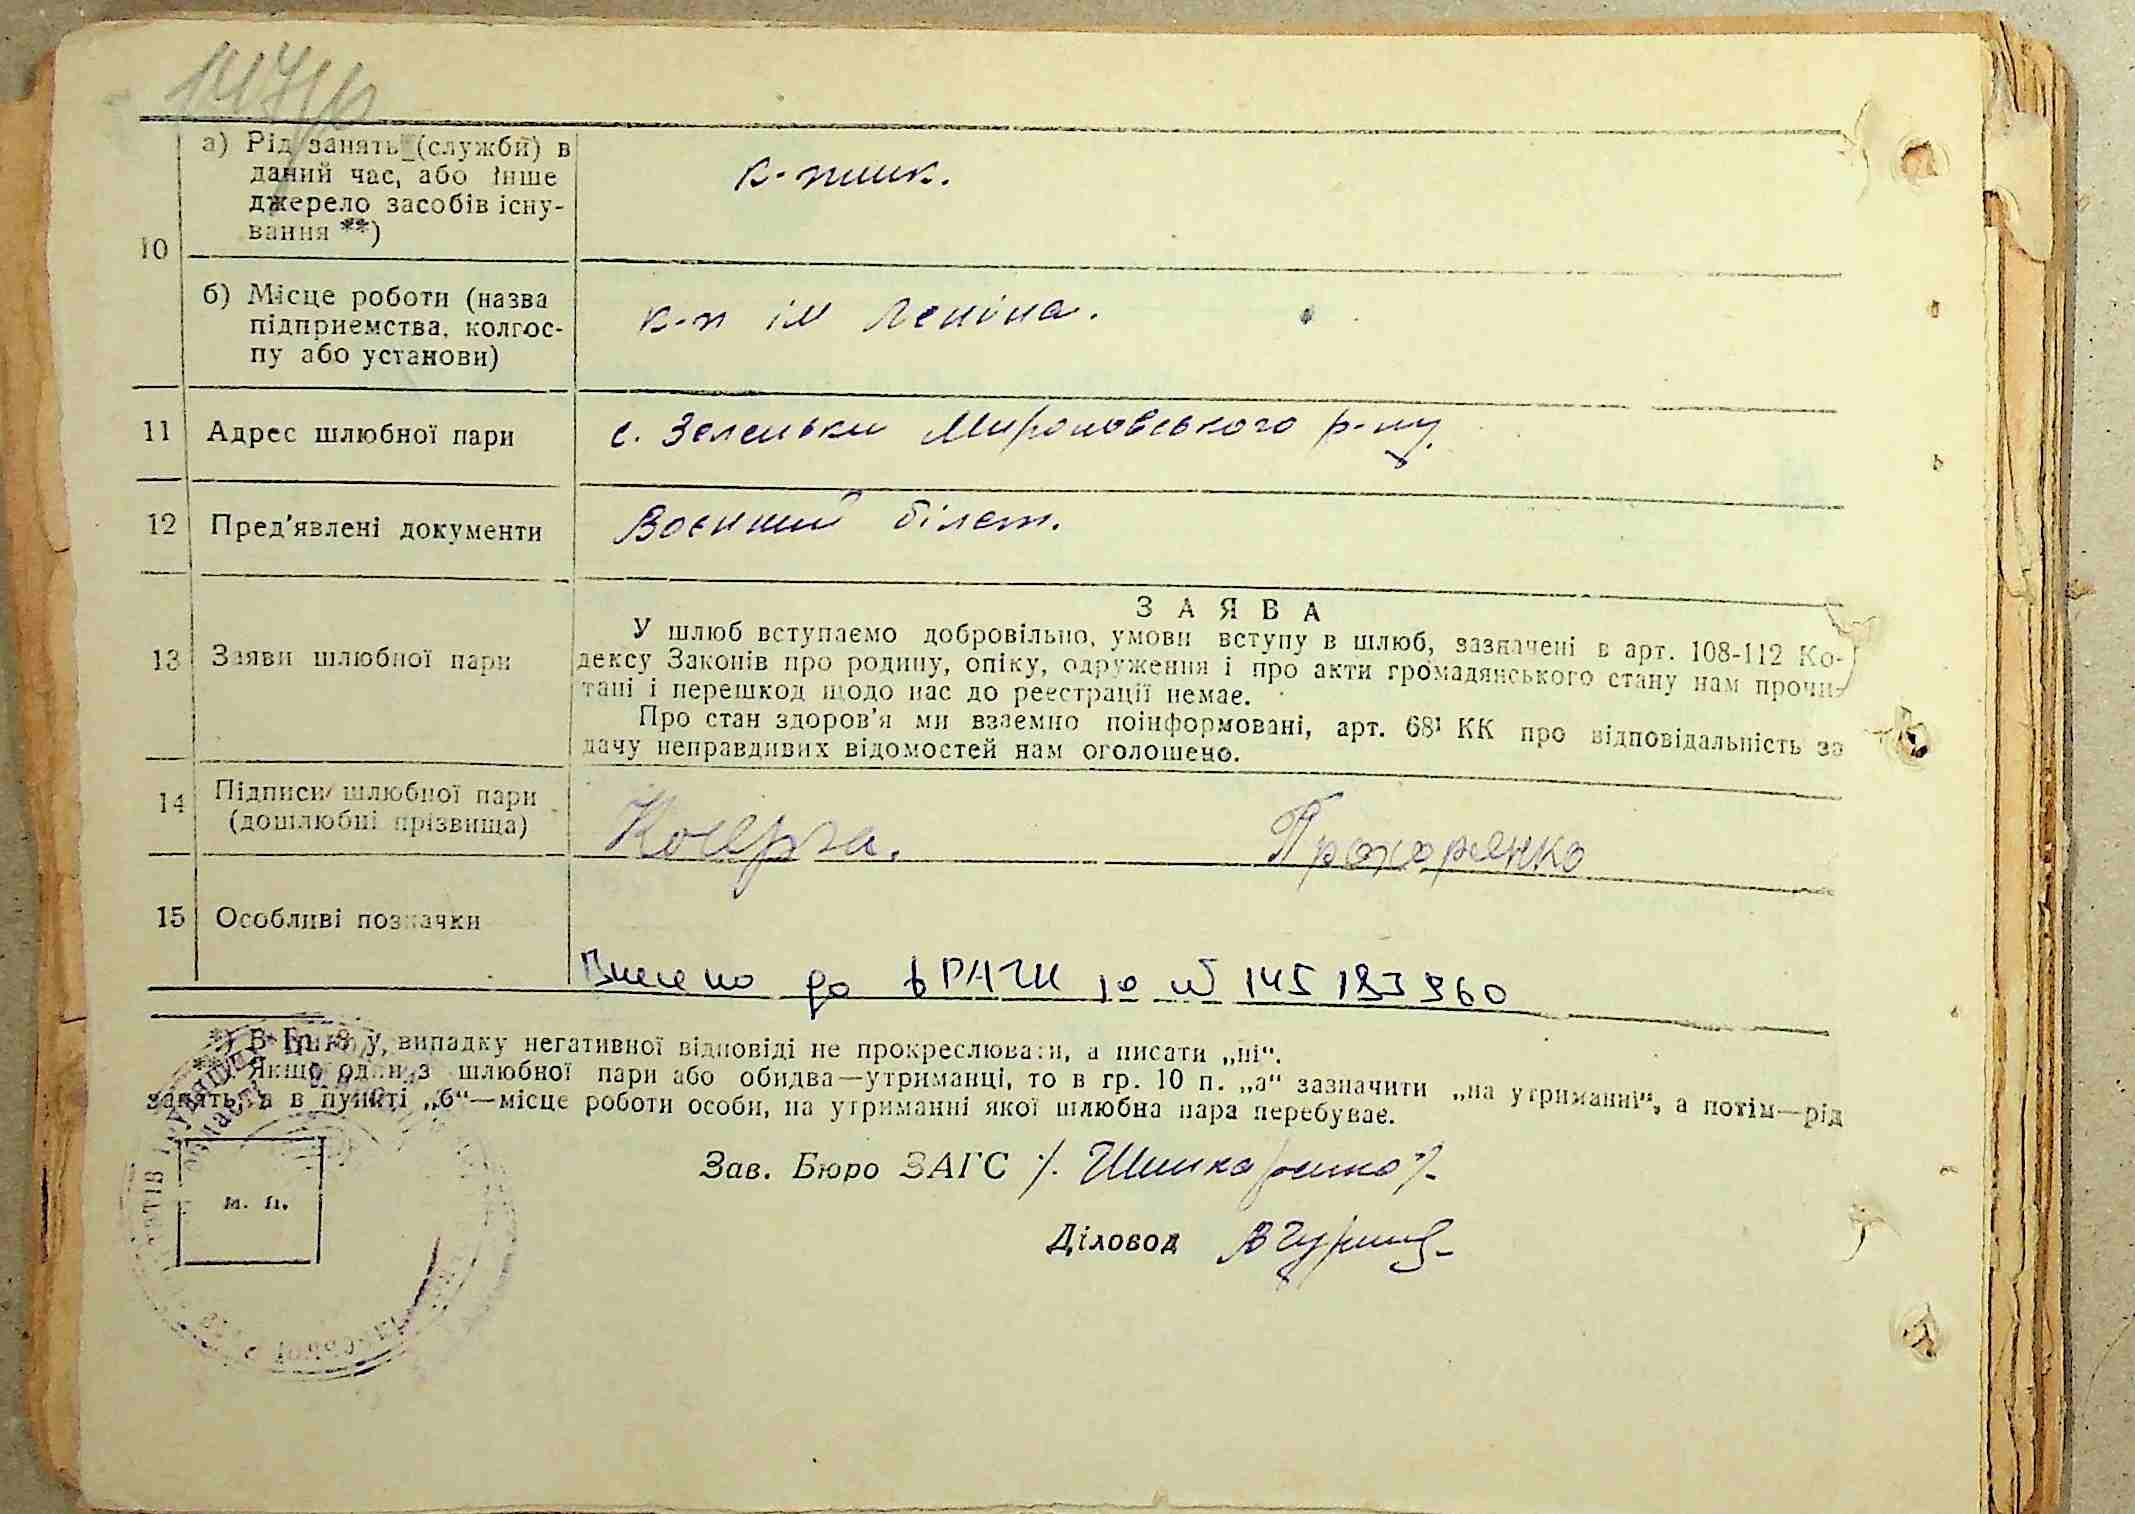 а) Рід занять (служби) в
даний час, або інше
джерело засобів існу-
вання **)
к-пник.
10
б) Місце роботи (назва
підприємства, колгос-
пу або установи)
к-п ім Леніна.
11 Адрес шлюбної пари
с. Зеленьки Мироновського р-ну.
12 Пред'явлені документи
Воєнний білет.
13 Заяви шлюбної пари
ЗАЯВА
У шлюб вступаємо добровільно, умови вступу в шлюб, зазначені в арт. 108-112 Ко-
дексу Законів про родину, опіку, одруження і про акти громадянського стану нам прочи-
тані і перешкод щодо нас до реєстрації немає.
Про стан здоров'я ми взаємно поінформовані, арт. 68¹ КК про відповідальність за
дачу неправдивих відомостей нам оголошено.
14 Підписи шлюбної пари
(дошлюбні прізвища)
Кочерга. Прохоренко
15 Особливі позначки
Внесено до ДРАЦС
*) В гр. 8 у випадку негативної відповіді не прокреслювати, а писати „ні“.
**) Якщо один з шлюбної пари або обидва—утриманці, то в гр. 10 п. „а“ зазначити „на утриманні“, а потім—рід
занять, а в пункті „б“—місце роботи особи, на утриманні якої шлюбна пара перебуває.
м. п.
Зав. Бюро ЗАГС
Діловод